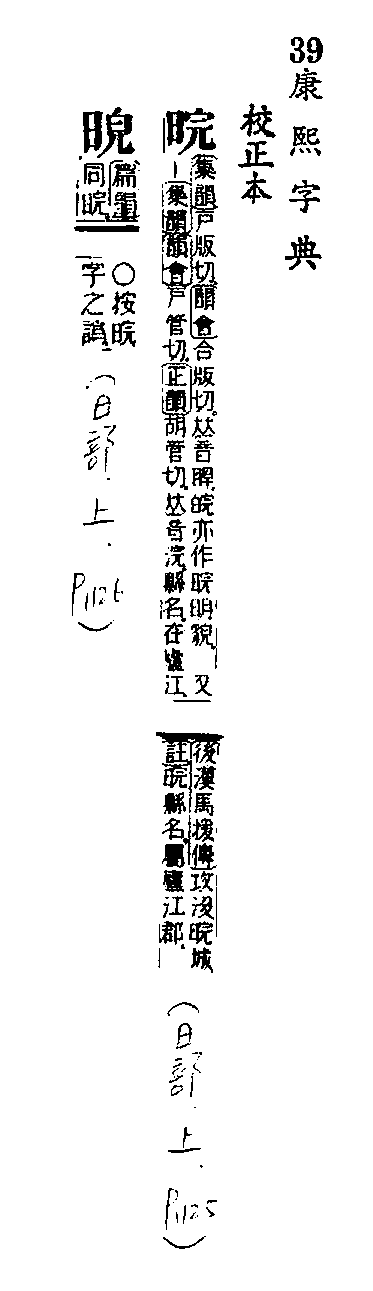 39康熙字典
校正本
晥
集韻戸版切韻會合版切𠀤音睅皖亦作晥明貌 又
一集韻韻會戸管切正韻胡管切𠀤音浣縣名在廬江
後漢馬援傳攻沒晥城
註晥縣名屬廬江郡
(日部.上.P.1125)
篇韻
同晥
○按晥
字之譌
(日部.上.P.1126)